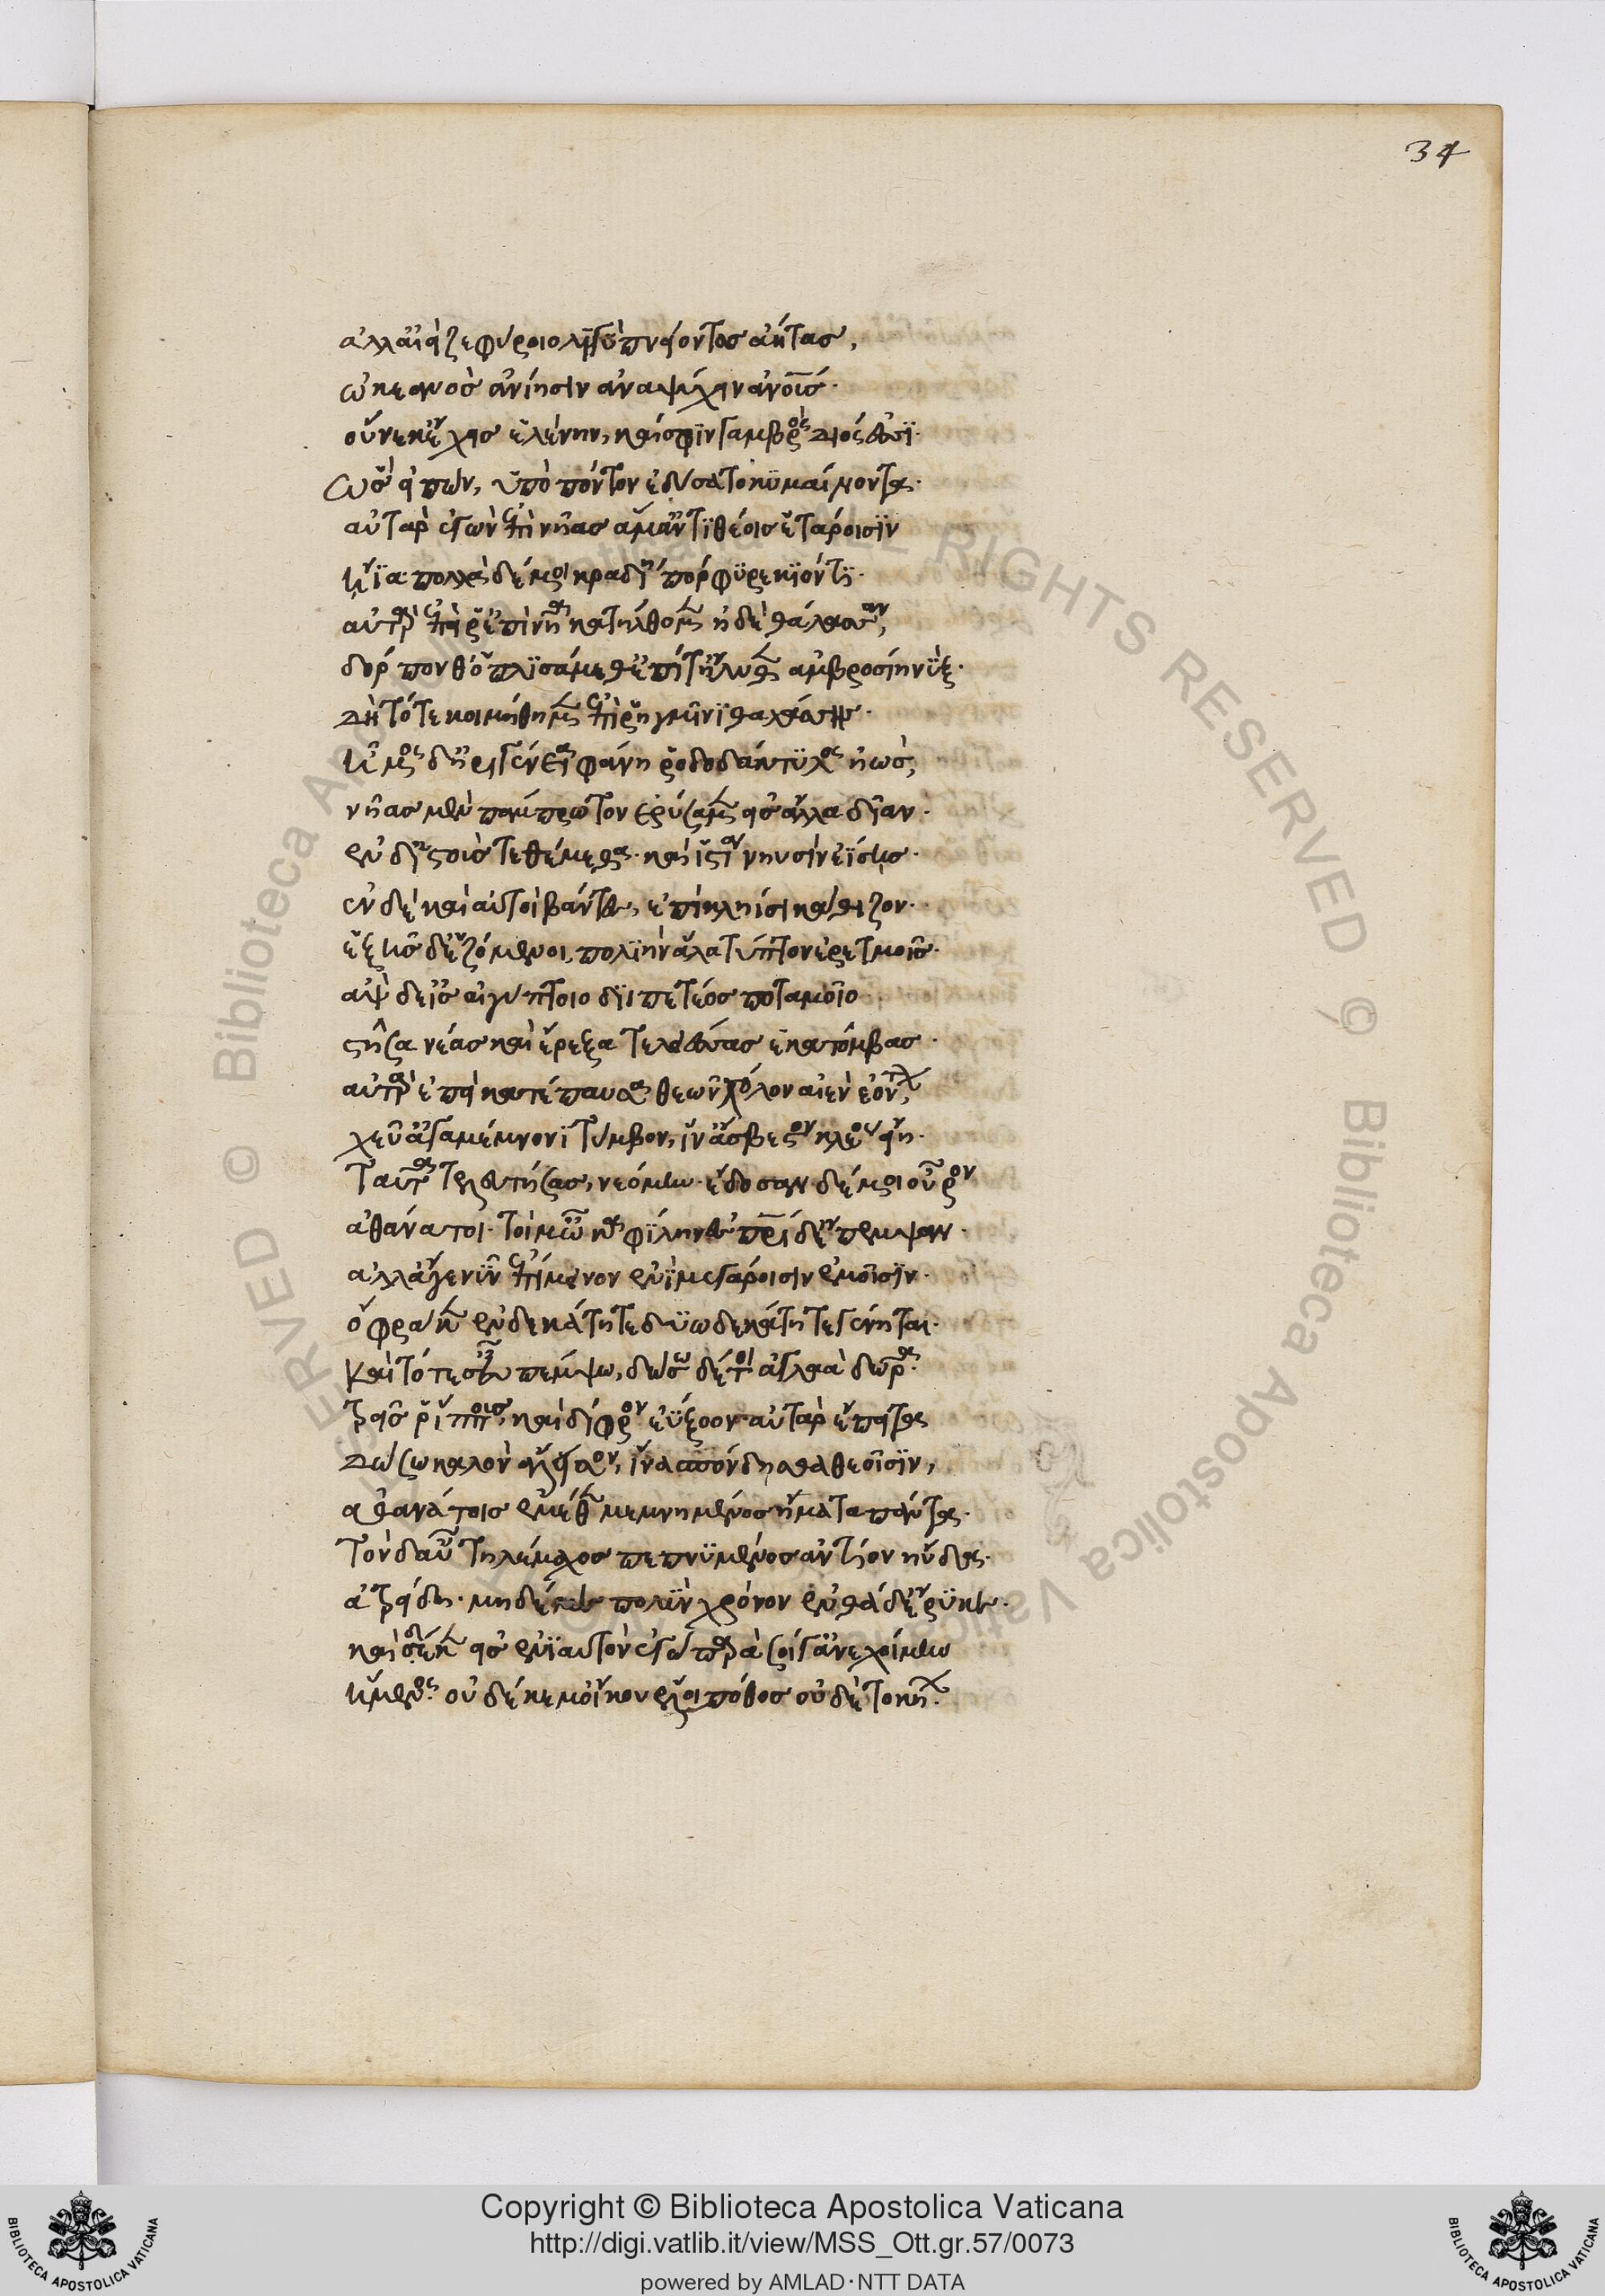 34
ἀλλ' αἰεὶ ζεφύροιο λιγὺ πνείοντος ἀήτας,
ὠκεανὸς ἀνίησιν ἀναψύχειν ἀνους·
οὕνεκ' ἔχεις ἑλένην, καί σφιν γαμβρὸς διός ἐσσι·
ὣς εἰπὼν, ὑπὸ πόντον ἐδύσατο κυμαίνοντα·
αὐτὰρ ἐγὼν ἐπὶ νῆας ἅμ' ἀντιθέοις ἑτάροισιν
ἤια· πολλὰ δέ μοι κραδίη πόρφυρε κιόντι·
αὐτὰρ ἐπεί ῥ' ἐπὶ νῆα κατήλθομεν ἠδὲ θάλασσαν,
δόρπον θ' ὁπλισάμεθ' ἐπί τ' ἤλυθεν ἀμβροσίη νύξ·
δὴ τότε κοιμήθημεν ἐπὶ ῥηγμῖνι θαλάσσης·
ἦμος δ' ἠριγένεια φάνη ῥοδοδάκτυλος ἠώς,
νῆας μὲν πάμπρωτον ἐρύσαμεν εἰς ἅλα δῖαν·
ἐν δ' ἱστοὺς τεθέμεθα καὶ ἱστία νηυσὶν ἐίσῃς·
ἐν δὲ καὶ αὐτοὶ βάντες, ἐπὶ κληῖσι κάθιζον·
ἑξῆς δ' ἑζόμενοι, πολιὴν ἅλα τύπτον ἐρετμοῖς·
ἂψ δ' εἰς αἰγύπτοιο διιπετέος ποταμοῖο
στῆσα νέας καὶ ἔρεξα τεληέσσας ἑκατόμβας·
αὐτὰρ ἐπεὶ κατέπαυσα θεῶν χόλον αἰὲν ἐόντων,
χεῦ' ἀγαμέμνονι τύμβον, ἵν' ἄσβεστον κλέος εἴη·
ταῦτα τελευτήσας, νεόμην· ἔδοσαν δέ μοι οὖρον
ἀθάνατοι· τοί μ' ὦκα φίλην ἐς πατρίδ' ἔπεμψαν·
ἀλλ' ἄγε νῦν ἐπίμεινον ἐνὶ μεγάροισιν ἐμοῖσιν·
ὄφρα κεν ἑνδεκάτη τε δυωδεκάτη τε γένηται·
καὶ τότε σ' εὖ πέμψω, δώσω δέ τοι ἀγλαὰ δῶρα·
τρεῖς ἵππους, καὶ δίφρον ἐύξοον· αὐτὰρ ἔπειτα
δώσω καλὸν ἄλεισον, ἵνα σπένδησθα θεοῖσιν,
ἀθανάτοις ἐμέθεν μεμνημένος ἤματα πάντα·
τὸν δ' αὖ τηλέμαχος πεπνυμένος ἀντίον ηὔδα·
ἀτρείδη· μὴ δή με πολὺν χρόνον ἐνθάδ' ἔρυκε·
καὶ γάρ κεν εἰς ἐνιαυτὸν ἐγὼ παρὰ σοί γ' ἀνεχοίμην
ἥμενος· οὐδέ κέ μ' οἴκου ἕλοι πόθος οὐδὲ τοκήων·
Copyright © Biblioteca Apostolica Vaticana
http://digi.vatlib.it/view/MSS_Ott.gr.57/0073
powered by AMLAD·NTT DATA